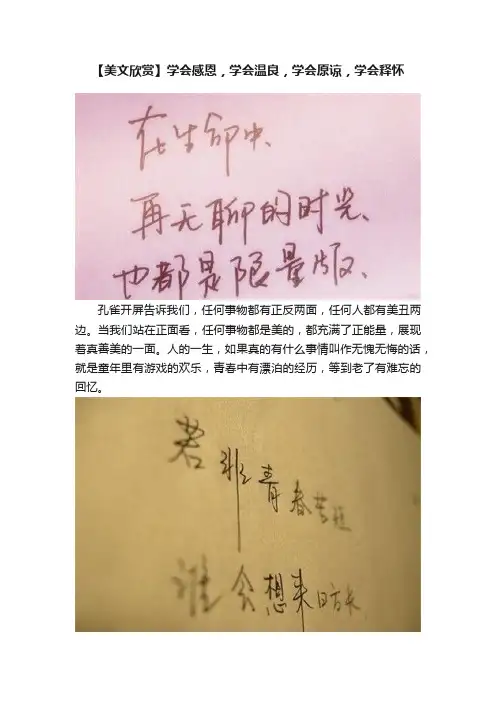 【美文欣赏】学会感恩，学会温良，学会原谅，学会释怀
在生命中、
再无聊的时光、
也都是限量版、
孔雀开屏告诉我们，任何事物都有正反两面，任何人都有美丑两
边。当我们站在正面看，任何事物都是美的，都充满了正能量，展现
着真善美的一面。人的一生，如果真的有什么事情叫作无愧无悔的话，
就是童年里有游戏的欢乐，青春中有漂泊的经历，等到老了有难忘的
回忆。
若
非青春苦短
谁会想来日方长